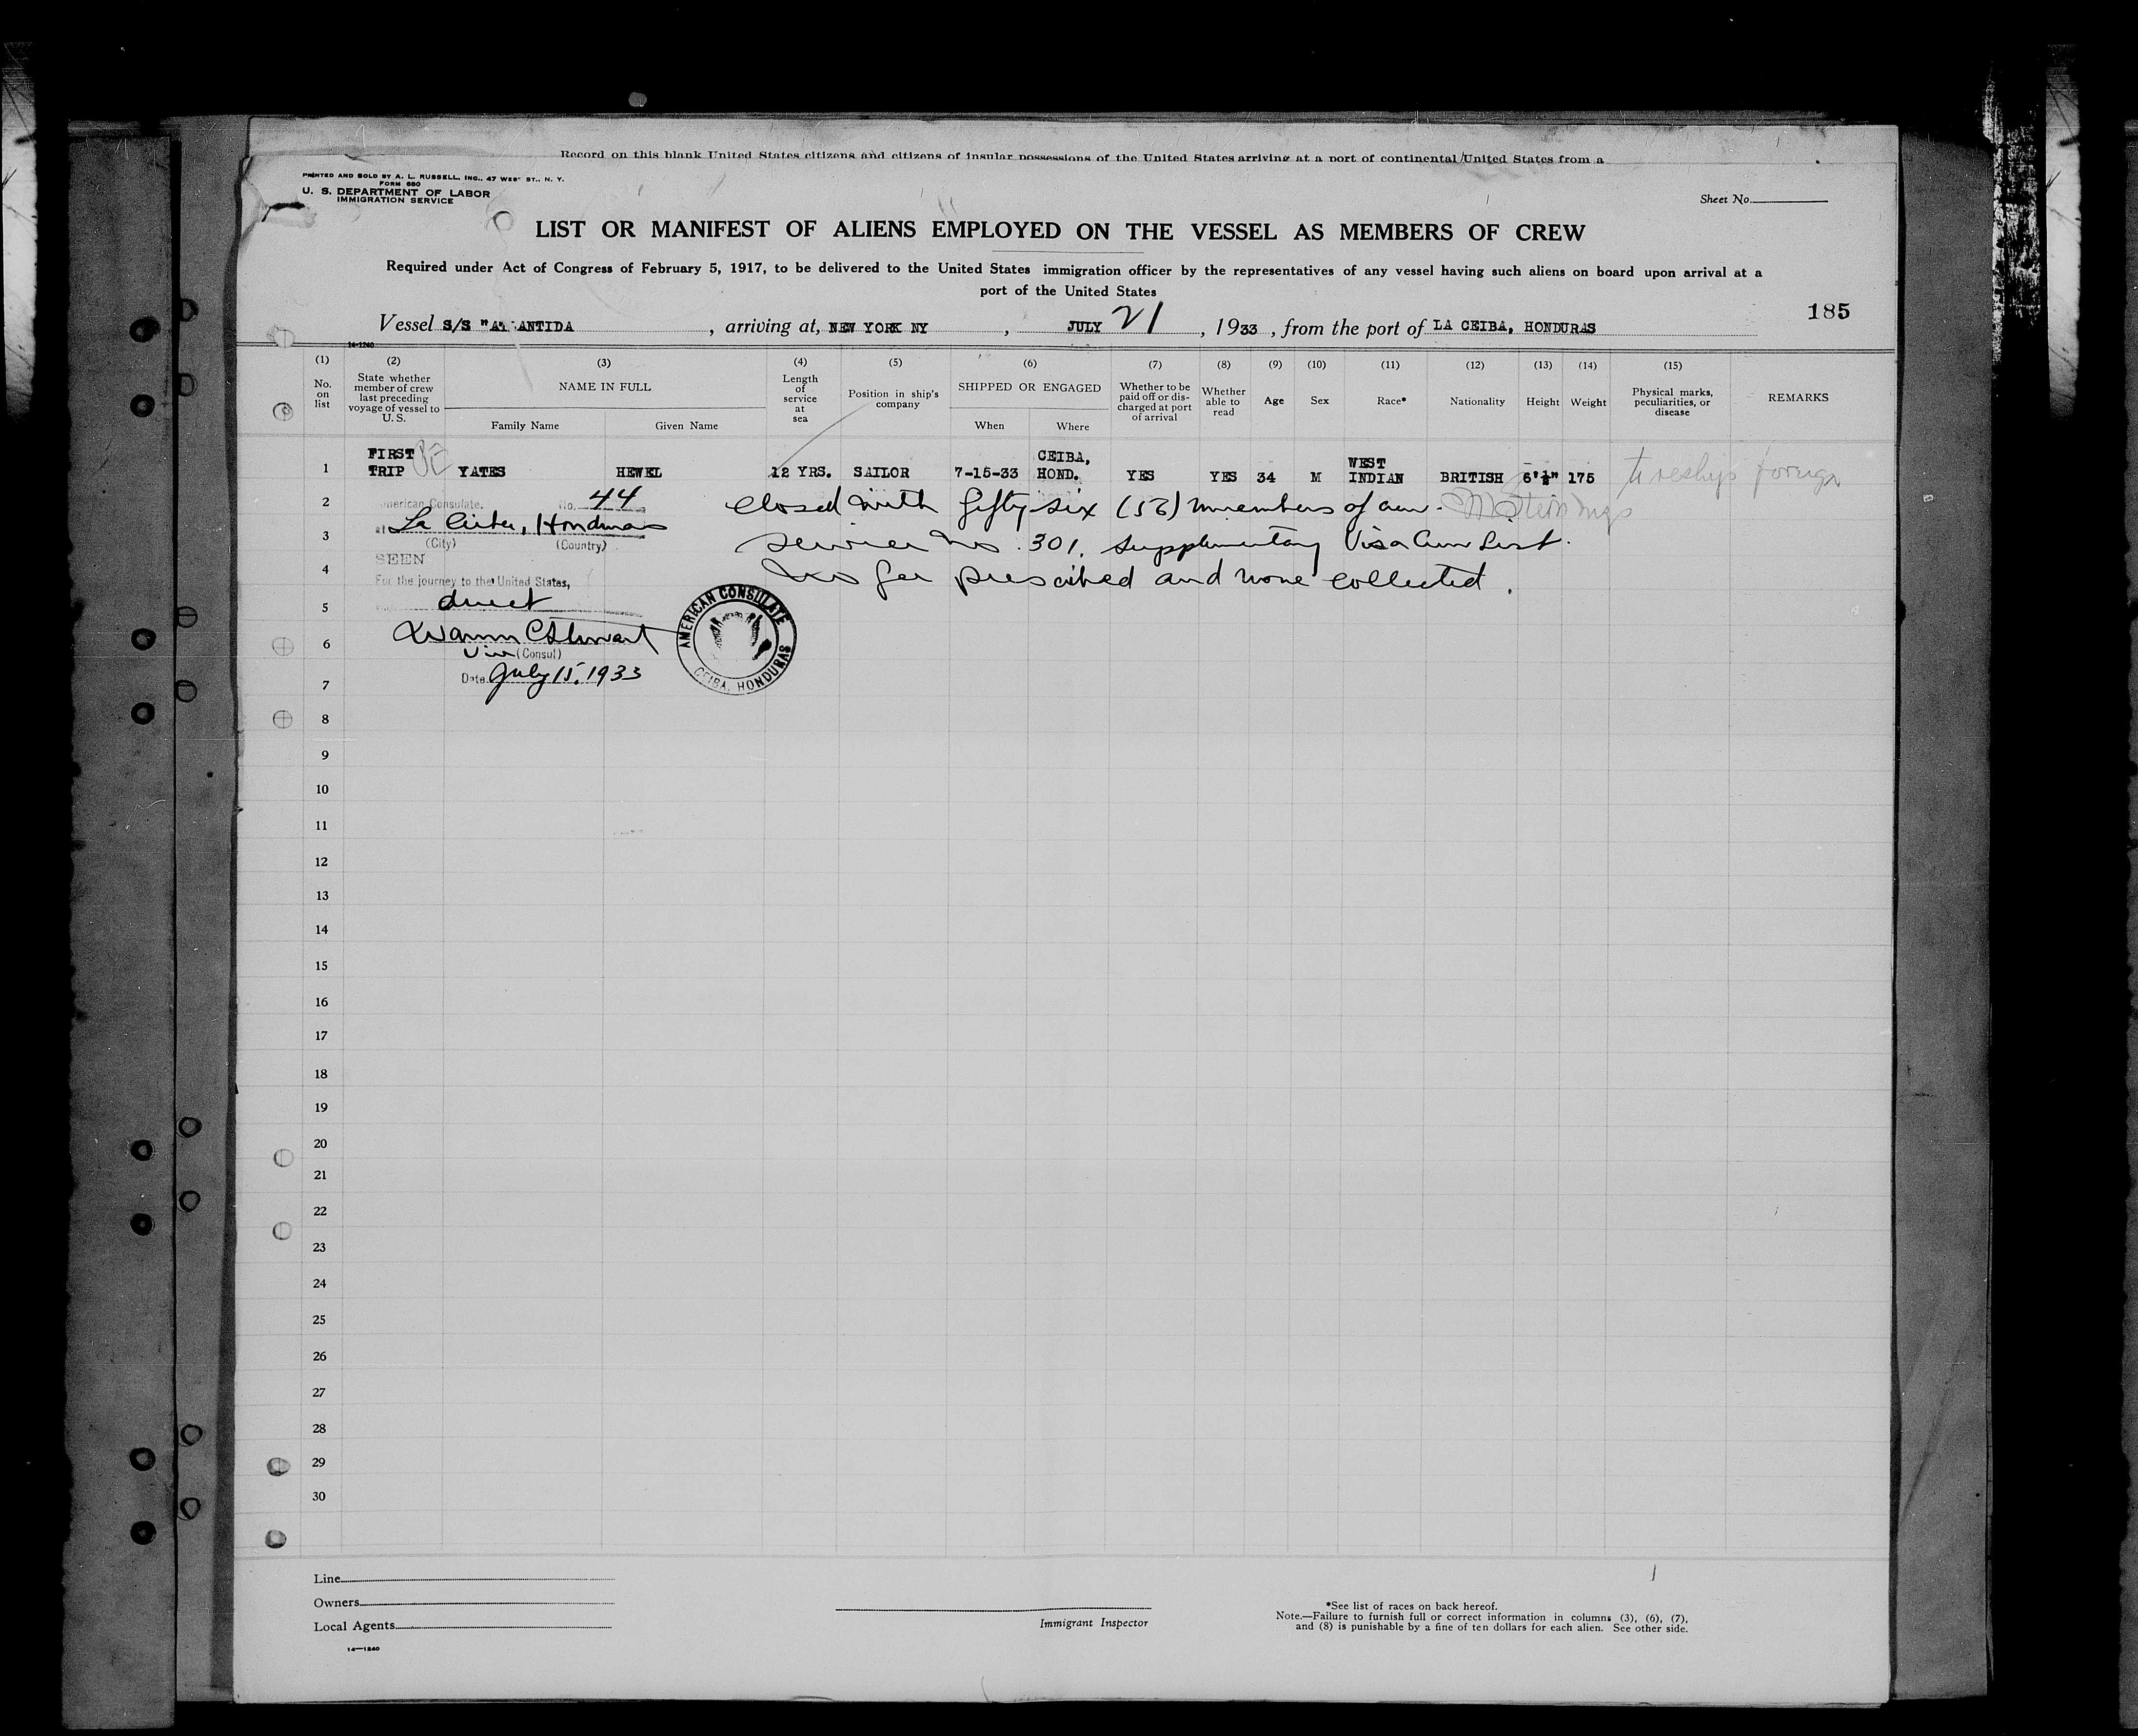 Record on this blank United States citizens and citizens of insular possessions of the United States arriving at a port of continental United States from a
PRINTED AND SOLD BY A. L. RUSSELL, INC., 47 WEST ST., N. Y.
FORM 680
U. S. DEPARTMENT OF LABOR
IMMIGRATION SERVICE
Sheet No.
LIST OR MANIFEST OF ALIENS EMPLOYED ON THE VESSEL AS MEMBERS OF CREW
Required under Act of Congress of February 5, 1917, to be delivered to the United States immigration officer by the representatives of any vessel having such aliens on board upon arrival at a
port of the United States
185
Vessel S/S "ATLANTIDA , arriving at, NEW YORK NY , JULY 21 , 1933 , from the port of LA CEIBA, HONDURAS
14-1240
(1) No. on list
(2) State whether member of crew last preceding voyage of vessel to U. S.
(3) NAME IN FULL
Family Name Given Name
(4) Length of service at sea
(5) Position in ship's company
(6) SHIPPED OR ENGAGED
When Where
(7) Whether to be paid off or discharged at port of arrival
(8) Whether able to read
(9) Age
(10) Sex
(11) Race*
(12) Nationality
(13) Height
(14) Weight
(15) Physical marks, peculiarities, or disease
REMARKS
1 FIRST TRIP YATES HEWEL 12 YRS. SAILOR 7-15-33 CEIBA, HOND. YES YES 34 M WEST INDIAN BRITISH 6'½" 175 foreign
2 American Consulate. No. 44
Closed with fifty six (56) members of crew.
at La Ceiba, Honduras
3 (City) (Country)
Service No. 301. Supplementary Visa Crew List.
SEEN
4 For the journey to the United States,
No fee prescribed and none collected.
5 direct
6 Warren C Stewart
Vice (Consul)
7 Date July 15, 1933
AMERICAN CONSULATE
CEIBA, HONDURAS
8
9
10
11
12
13
14
15
16
17
18
19
20
21
22
23
24
25
26
27
28
29
30
Line
Owners
Local Agents
14—1240
Immigrant Inspector
*See list of races on back hereof.
Note.—Failure to furnish full or correct information in columns (3), (6), (7),
and (8) is punishable by a fine of ten dollars for each alien. See other side.